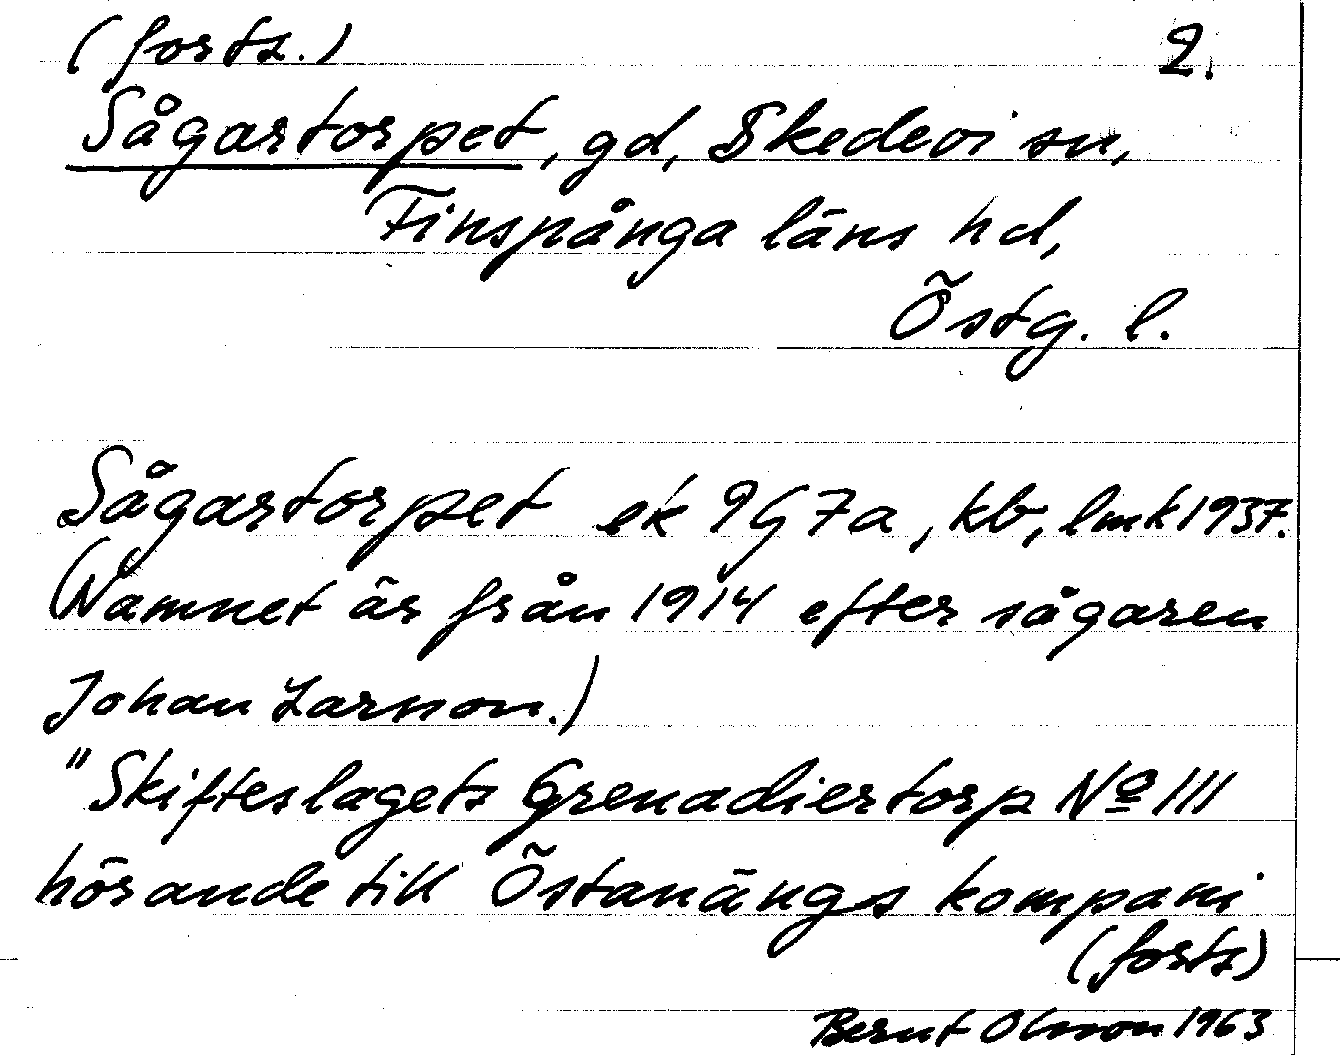 (forts.) 2.
Sågartorpet, gd, Skedevi sn,
Finspånga läns hd,
Östg. l.
Sågartorpet ek 9G7a, kb, lmk 1937.
(Namnet är från 1914 efter sågaren
Johan Larsson.)
"Skifteslagets Grenadiertorp No III
hörande till Östanängs kompani
(forts)
Bernt Olsson 1963